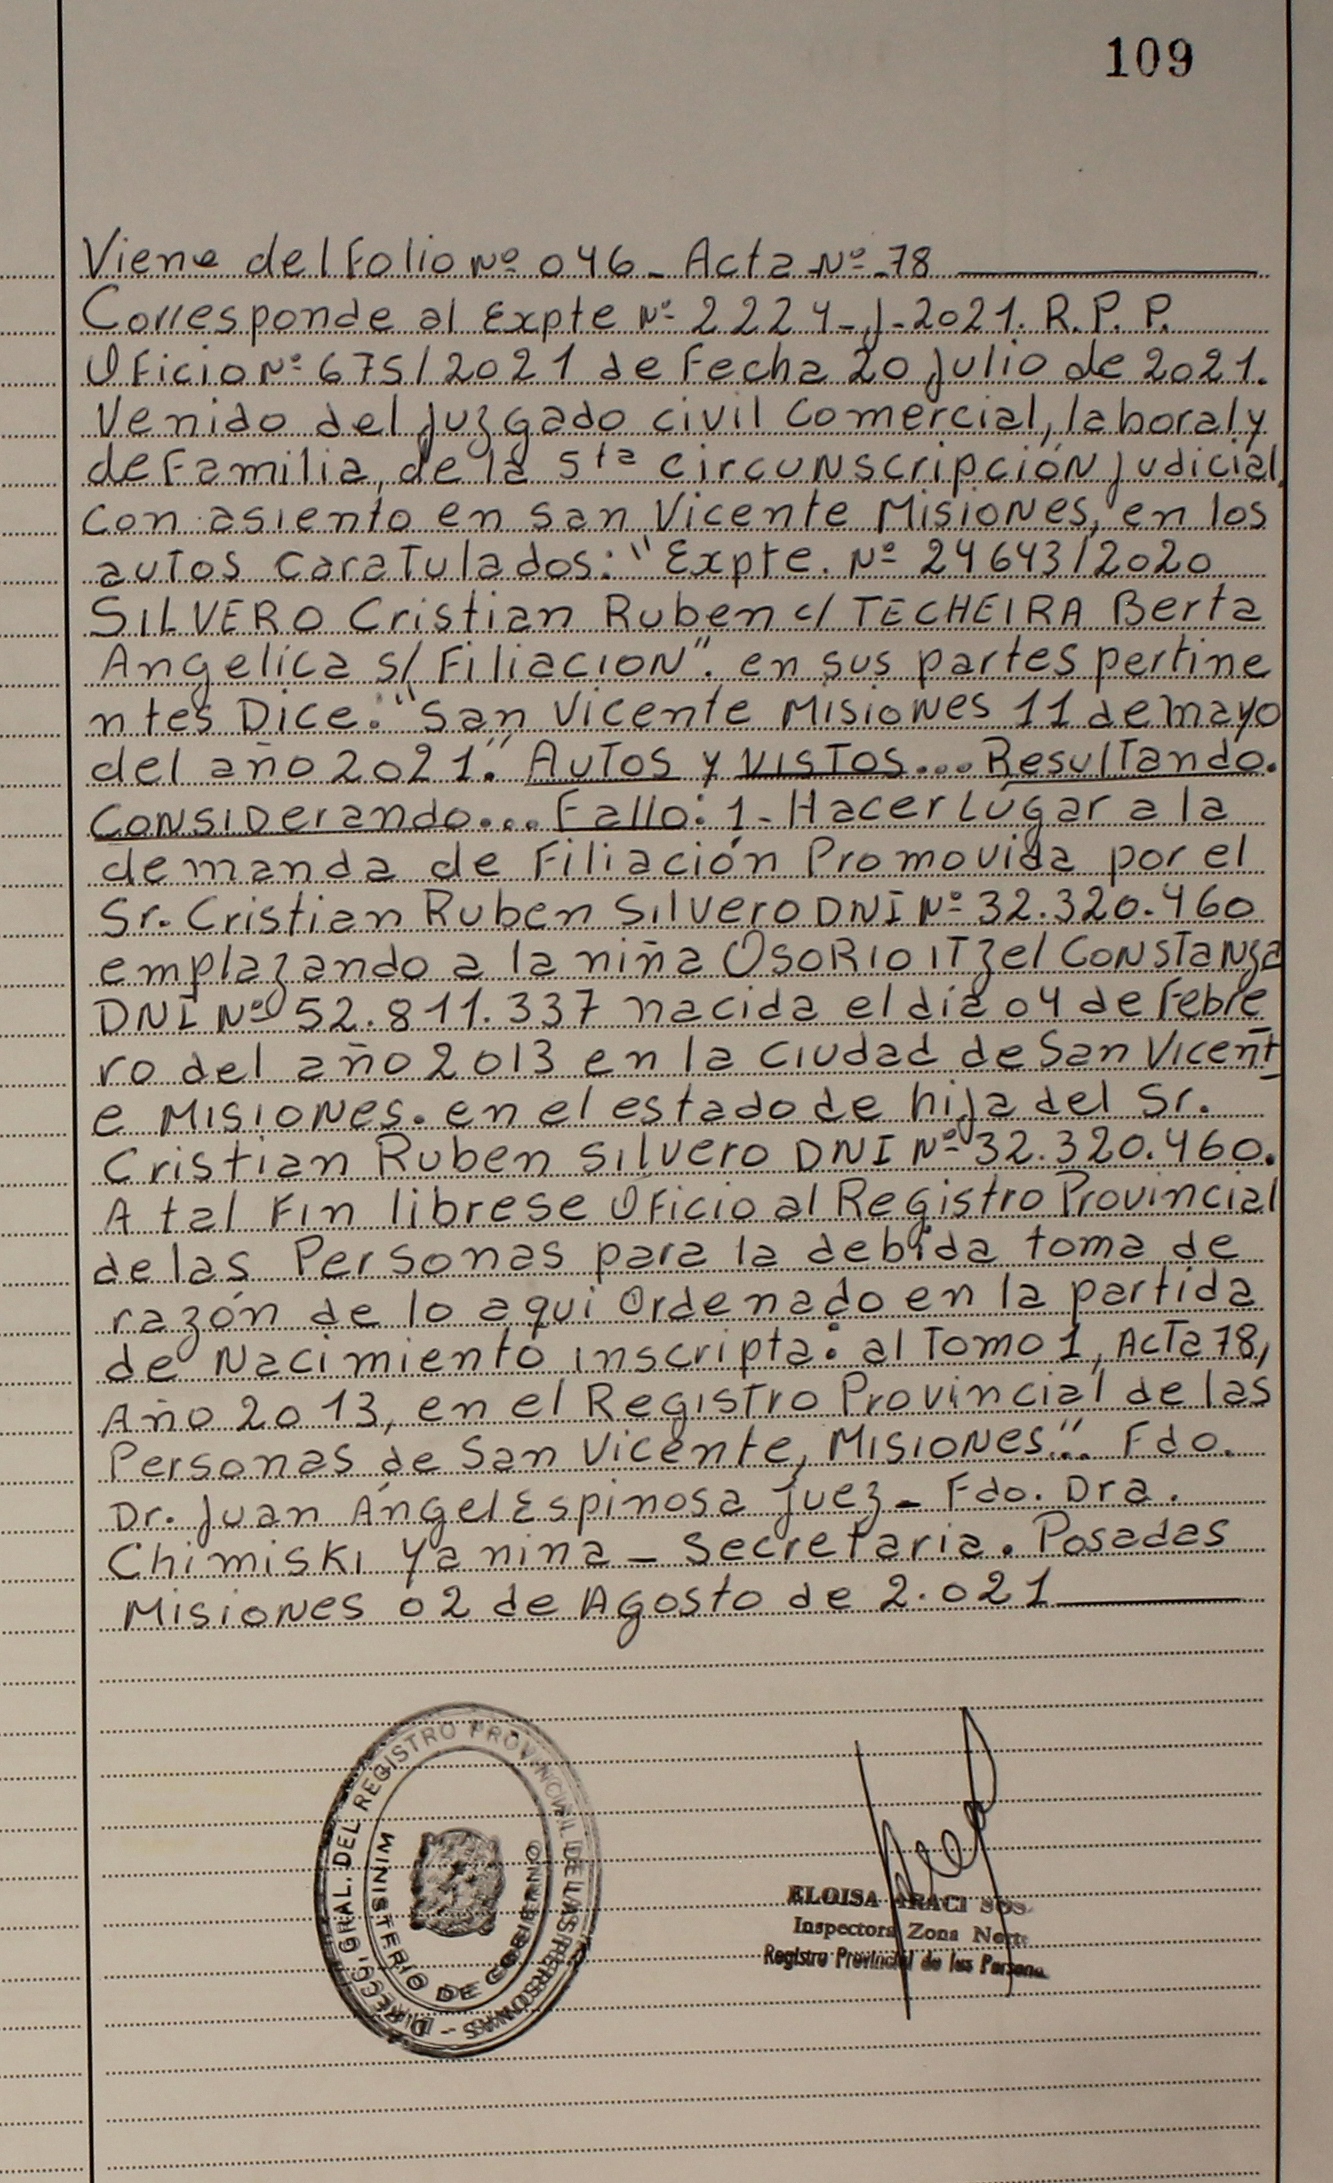 109
Viene del Folio Nº 046_ Acta Nº 78
Corresponde al Expte Nº 2224_J-2021. R.P.P.
Oficio Nº 675/2021 de Fecha 20 Julio de 2021.
Venido del Juzgado civil Comercial, laboral y
de Familia, de la 5ta circunscripción Judicial,
con asiento en San Vicente Misiones, en los
autos caratulados: "Expte. Nº 24643/2020
SILVERO Cristian Ruben c/ TECHEIRA Berta
Angelica s/ Filiacion". en sus partes pertine
ntes Dice: "San Vicente Misiones 11 de mayo
del año 2021". Autos y vistos... Resultando.
Considerando... Fallo: 1- Hacer Lugar a la
demanda de Filiación Promovida por el
Sr. Cristian Ruben Silvero DNI Nº 32.320.460
emplazando a la niña OSORIO ITzel Constanza
DNI Nº 52.811.337 nacida el día 04 de Febre
ro del año 2013 en la ciudad de San Vicent
e Misiones. en el estado de hija del Sr.
Cristian Ruben Silvero DNI Nº 32.320.460.
A tal Fin librese Oficio al Registro Provincial
de las Personas para la debida toma de
razón de lo aqui Ordenado en la partida
de Nacimiento inscripta: al Tomo 1, Acta 78,
Año 2013, en el Registro Provincial de las
Personas de San Vicente, Misiones"... Fdo.
Dr. Juan Ángel Espinosa Juez_ Fdo. Dra.
Chimiski Yanina _ Secretaria. Posadas
Misiones 02 de Agosto de 2.021
GRAL. DEL REGISTRO PROVINCIAL DE LAS PERSONAS -
MINISTERIO DE GOBIERNO
ELOISA ARACI
Inspectora Zona Norte
Registro Provincial de las Persona